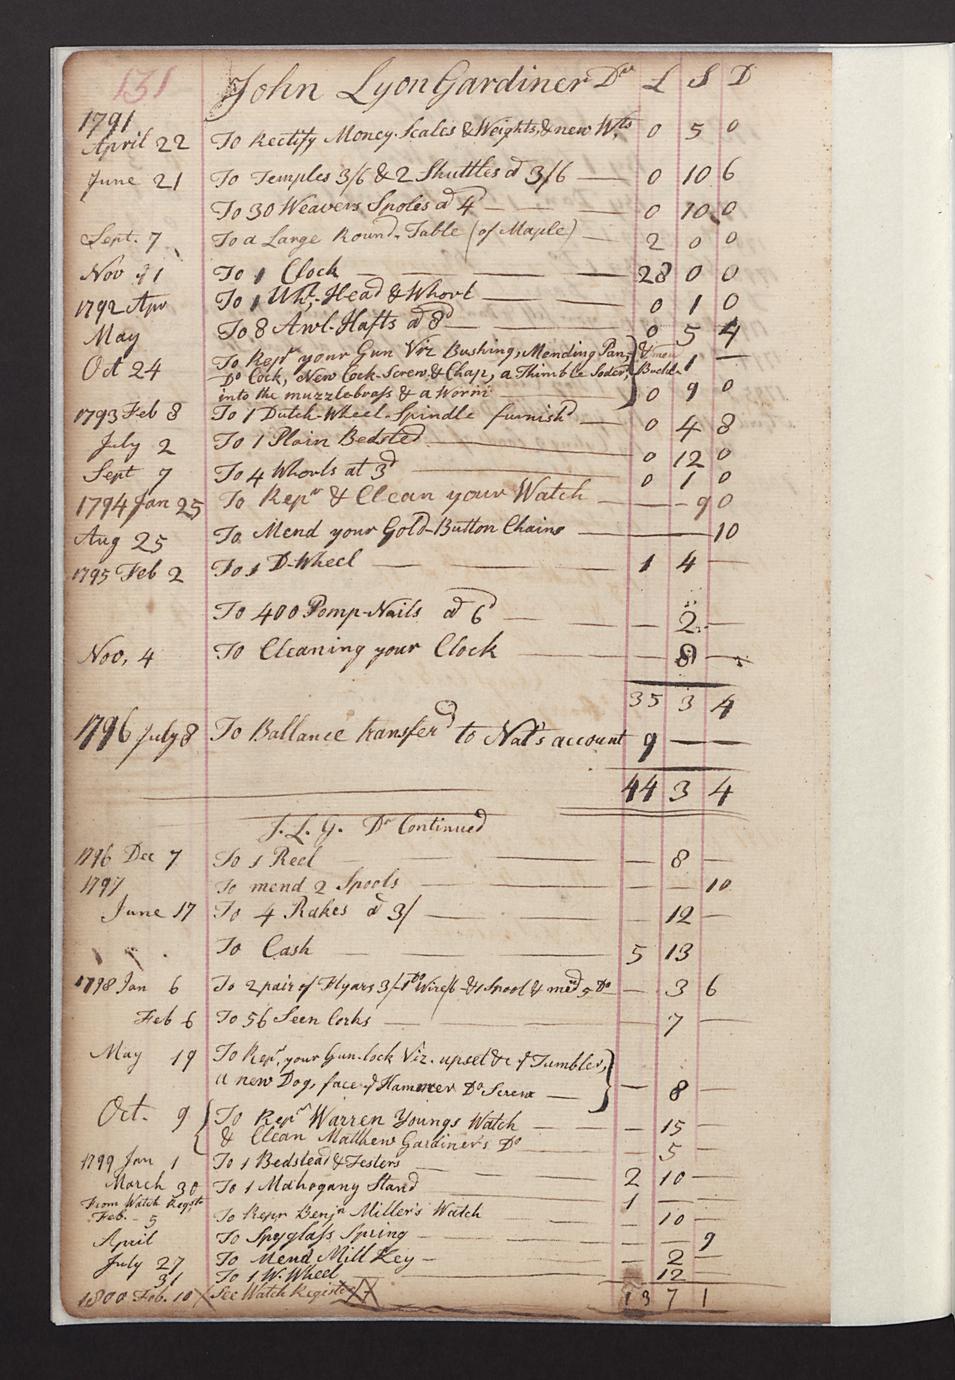 131 John Lyon Gardiner Dr L S D
1791
April 22 To Rectify Money Scales & Weights, & new Wts 0 5 0
June 21 To Temples 3/6 & 2 Shuttles @ 3/6 — 0 10 6
To 30 Weavers Spoles @ 4d — 0 10 0
Sept. 7 To a Large Round-Table (of Maple) — 2 0 0
Nov 21 To 1 Clock — 28 0 0
1792 Apr To 1 Whl-Head & Whorl — 0 1 0
May To 8 Awl-Hafts @ 8d — 0 5 4
Oct 24 To Repr your Gun Viz Bushing, Mending Pan, 1 —
Do Cock, New Cock-Screw & Chap, a Thimble Soderd
into the muzzlebrass & a Worm — 0 9 0
1793 Feb 8 To 1 Dutch-Wheel-Spindle furnishd — 0 4 8
July 2 To 1 Plain Bedsted — 0 12 0
Sept 7 To 4 Whorls at 3d — 0 1 0
1794 Jan 25 To Repr & Clean your Watch — 9 0
Aug 25 To Mend your Gold-Button Chains — 10
1795 Feb 2 To 1 D-Wheel — 1 4 —
To 400 Pomp-Nails @ 6d — 2 —
Nov, 4 To Cleaning your Clock — 8 —
35 3 4
1796 July 8 To Ballance transferd to Nat's account 9 — —
44 3 4
J. L. G. Dr Continued
1796 Dec 7 To 1 Reel — 8 —
1797 To mend 2 Spools — 10
June 17 To 4 Rakes @ 3/ — 12 —
To Cash — 5 13
1798 Jan 6 To 2 pair of Flyars 3/ 1 Do Wires & 1 Spool & med 5 Do — 3 6
Feb 6 To 56 Seen Corks — 7 —
May 19 To Repr. your Gun-lock Viz. upset &c of Tumbler,
a new Dog, face of Hammer Do Screw — 8 —
Oct. 9 To Repr Warren Youngs Watch — 15 —
& Clean Matthew Gardiner's Do — 5 —
1799 Jan 1 To 1 Bedstead & Testers — 2 10 —
March 30 To 1 Mahogany Stand 1 — —
From Watch Registr
Feb. - 5 To Repr Benjn Miller's Watch — 10 —
April To Spyglass Spring — 9
July 27 To Mend Mill Key — 2 —
31 To 1 W. Wheel — 12 —
1800 Feb. 10 See Watch Register 13 7 1